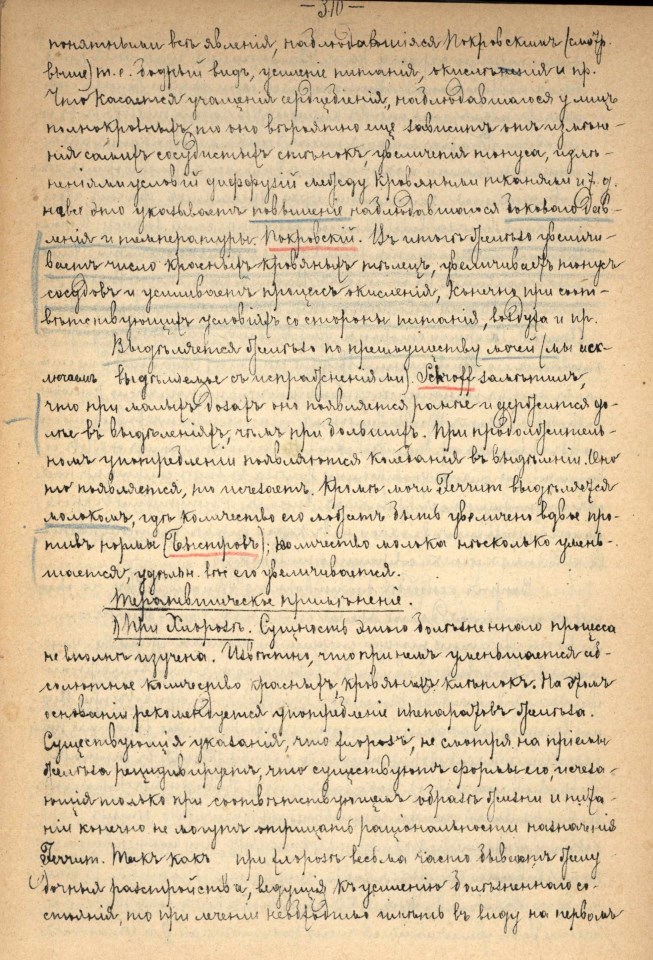 —310—
понятными всѣ явленія, наблюдавшіяся Покровскимъ (смотр.
выше) т. е. бодрый видъ, усиленіе питанія, окисленія и пр.
Что касается учащенія сердцебіенія, наблюдавшагося у лицъ
полнокровныхъ, то оно вѣроятно еще зависитъ отъ измѣне-
нія самихъ сосудистыхъ стѣнокъ, увеличенія тонуса, измѣ-
неніями условій диффузіи между кровяными тканями и т. д.
на все это указываетъ повышеніе наблюдавшагося боковаго дав-
ленія и температуры. Покровскій. Изъ этого желѣзо увеличи-
ваетъ число красныхъ кровяныхъ тѣлецъ, увеличиваетъ тонусъ
сосудовъ и усиливаетъ процессъ окисленія, конечно при соот-
вѣтствующихъ условіяхъ со стороны питанія, воздуха и пр.
Выдѣляется желѣзо по преимуществу мочей (мы иск-
лючаемъ выдѣляемое съ испражненіями). Schroff замѣтилъ,
что при малыхъ дозахъ оно появляется ранѣе и держится до-
лѣе въ выдѣленіяхъ, чѣмъ при большихъ. При продолжитель-
номъ употребленіи появляются колебанія въ выдѣленіи. Оно
то появляется, то исчезаетъ. Кромѣ мочи Ferrum выдѣляется
молокомъ, гдѣ количество его можетъ быть увеличено вдвое про-
тивъ нормы (Быстровъ); количество молока нѣсколько умень-
шается, удѣльн. вѣсъ его увеличивается.
Терапевтическое примѣненіе.
1) При Хлорозѣ. Сущность этого болѣзненнаго процесса
не вполнѣ изучена. Извѣстно, что при немъ уменьшается аб-
солютное количество красныхъ кровяныхъ клѣтокъ. На этомъ
основаніи рекомендуется употребленіе препаратовъ желѣза.
Существующія указанія, что хлорозъ, не смотря на пріемы
желѣза рецидивируетъ, что существуютъ формы его, исчеза-
ющія только при соотвѣтствующемъ образѣ жизни и пита-
ніи конечно не могутъ отрицать раціональности назначенія
Ferrum. Такъ какъ при хлорозѣ весьма часто бываютъ желу
дочныя разстройства, ведущія къ усиленію болѣзненнаго со-
стоянія, то при леченіи необходимо имѣть въ виду на первомъ